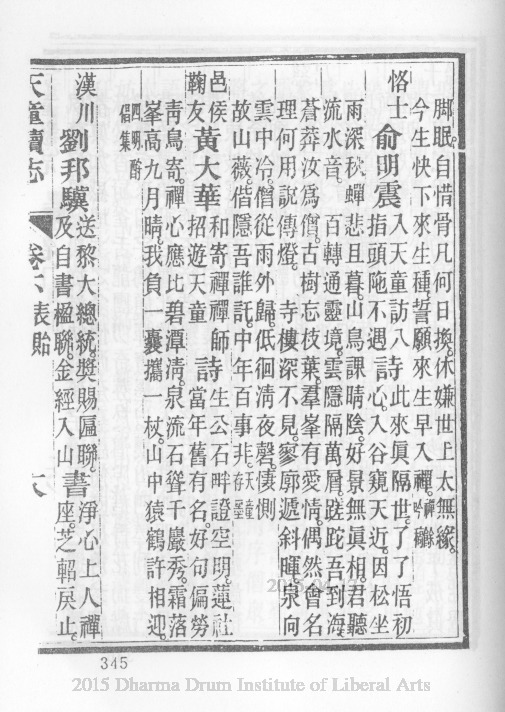 脚眠。自惜骨凡何日換。休嫌世上太無緣。
今生快下來生種。誓願來生早入禪。
恪士俞明震入天童訪八指頭陁不遇詩此來眞隔世。了了悟初心。入谷窺天近。因松坐
雨深。秋蟬悲且暮。山鳥課晴陰。好景無眞相。君聽
流水音。 百轉通靈境。雲隱隔萬層。蹉跎吾到海。
蒼莽汝爲僧。古樹忘枝葉。羣峯有愛憎。偶然會名
理。何用說傳燈。 寺樓深不見。寥廓遞斜暉。泉向
雲中冷。僧從雨外歸。低徊淸夜磬。悽惻
故山薇。偕隱吾誰託。中年百事非。
邑侯黃大華和寄禪禪師詩生公石畔證空明。蓮社
鞠友招遊天童當年舊有名。好句偏勞
靑鳥寄。禪心應比碧潭淸。泉流石聳千巖秀。霜落
峯高九月晴。我負一囊攜一杖。山中猿鶴許相迎。
四明酬倡集
漢川劉邦驥送黎大總統獎賜匾聯及自書楹聯金經入山書淨心上人禪
座。芝軺戾止。
天童續志 卷下 表貽
345
2015 Dharma Drum Institute of Liberal Arts